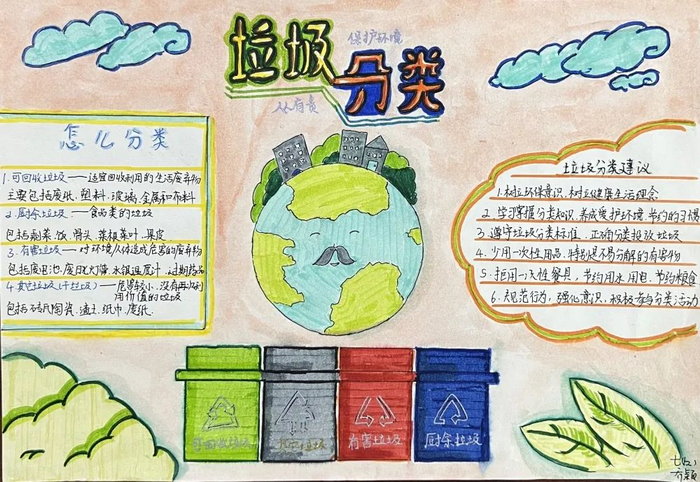 垃圾
分类
保护环境
人人有责
怎么分类
1.可回收垃圾——适宜回收利用的生活废弃物
主要包括废纸、塑料、玻璃、金属和布料
2.厨余垃圾——食品类的垃圾
包括剩菜、饭、骨头、菜根菜叶、果皮
3.有害垃圾——对环境人体造成危害的废弃物
包括废电池、废日光灯、水银温度计、过期药品
4.其它垃圾(干垃圾)——危害较小,没有再次利
用价值的垃圾
包括砖瓦陶瓷、渣土、纸巾、废纸
垃圾分类建议
1.树立环保意识,树立健康生活理念
2.学习掌握分类知识,养成爱护环境、节约的习惯
3.遵守垃圾分类标准,正确分类投放垃圾
4.少用一次性用品,特别是不易分解的有害物
5.拒用一次性餐具,节约用水用电,节约粮食
6.规范行为,强化意识,积极参与分类活动
可回收垃圾
其它垃圾
有害垃圾
厨余垃圾